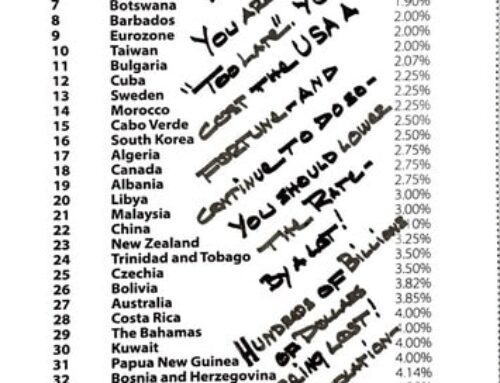 7 Botswana 1.90%
8 Barbados 2.00%
9 Eurozone 2.00%
10 Taiwan 2.00%
11 Bulgaria 2.07%
12 Cuba 2.25%
13 Sweden 2.25%
14 Morocco 2.25%
15 Cabo Verde 2.50%
16 South Korea 2.50%
17 Algeria 2.75%
18 Canada 2.75%
19 Albania 2.75%
20 Libya 3.00%
21 Malaysia 3.00%
22 China
23 New Zealand 3.25%
24 Trinidad and Tobago 3.50%
25 Czechia 3.50%
26 Bolivia 3.82%
27 Australia 3.85%
28 Costa Rica 4.00%
29 The Bahamas
30 Kuwait 4.00%
31 Papua New Guinea 4.00%
32 Bosnia and Herzegovina 4.14%
YOU ARE
"TOO LATE". YOU
COST THE USA A
FORTUNE - AND
CONTINUE TO DO SO -
YOU SHOULD LOWER
THE RATE -
BY A LOT!
HUNDREDS OF BILLIONS
OF DOLLARS
LOST!